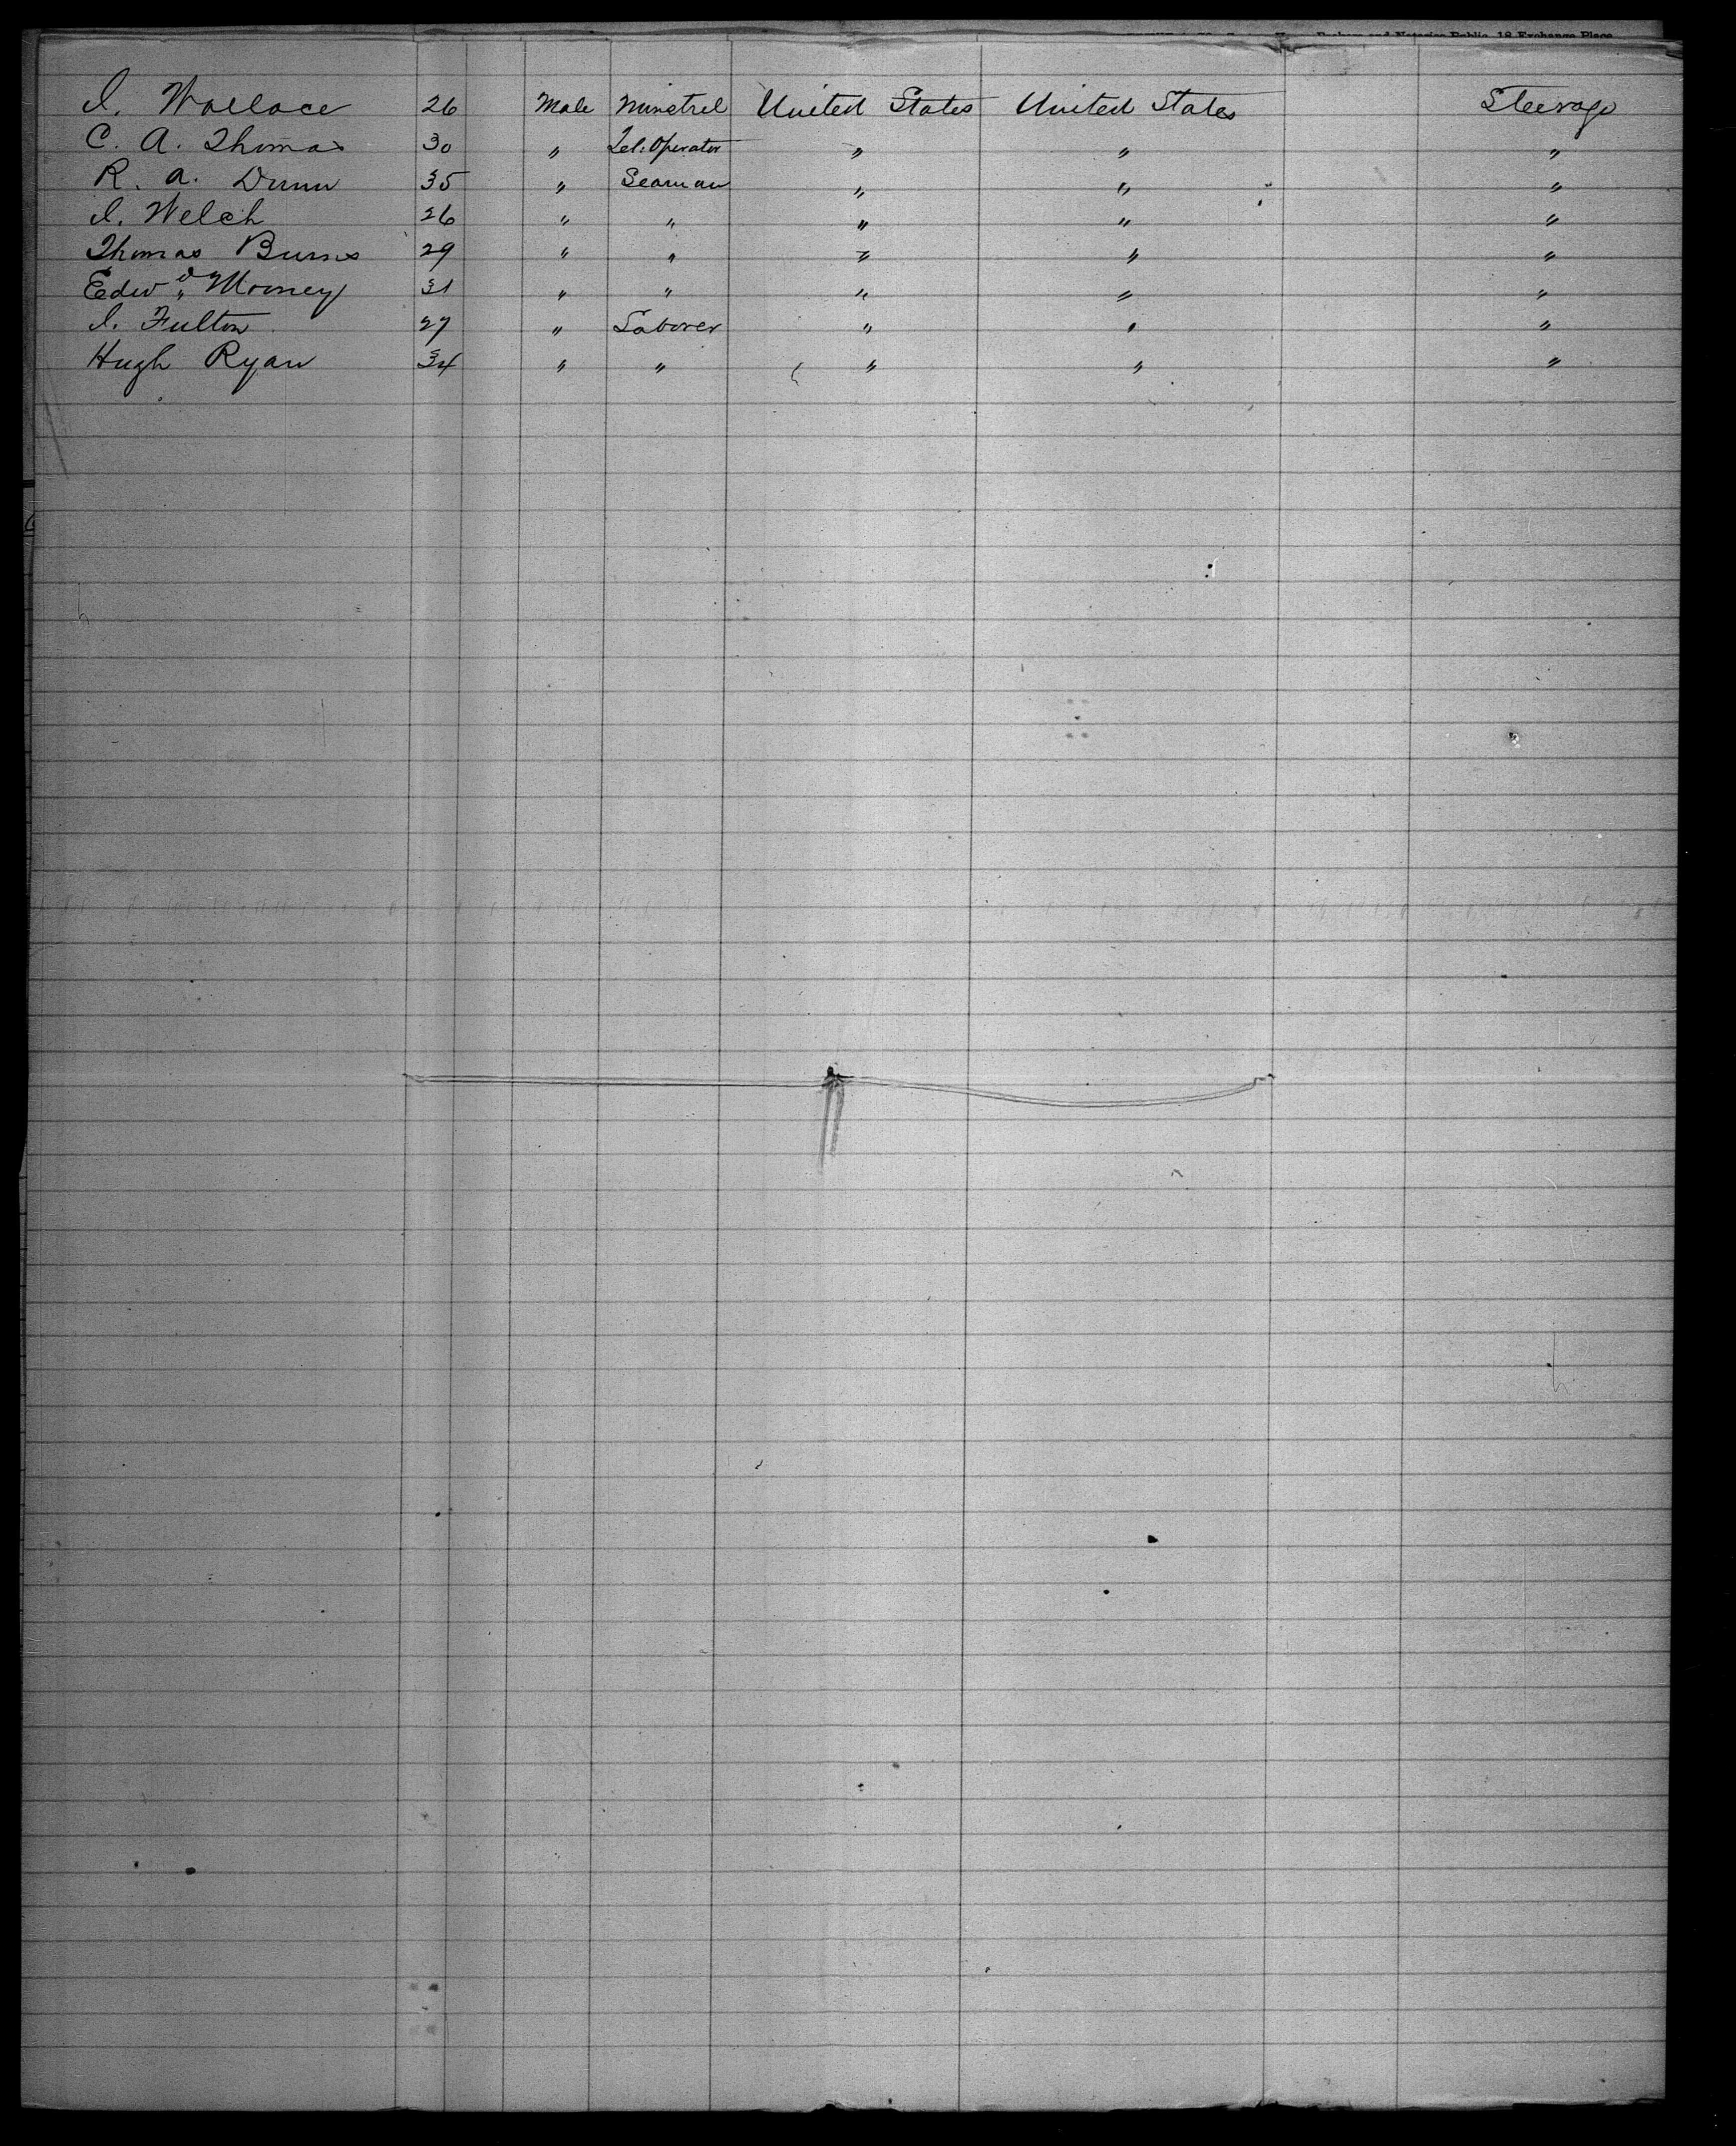 Brokers and Notaries Public, 18 Exchange Place
I. Wallace 26 Male Minstrel United States United States Steerage
C. A. Thomas 30 " Tel. Operator " " "
R. A. Dunn 35 " Seaman " " "
I. Welch 26 " " " " "
Thomas Burns 29 " " " " "
Edwd Mooney 31 " " " " "
I. Fulton 27 " Laborer " " "
Hugh Ryan 34 " " " " "